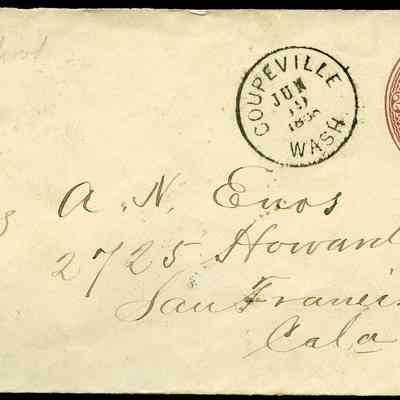 COUPEVILLE
JUN
19
WASH.
A. N. Enos
2725 Howard
San Franci
Cala